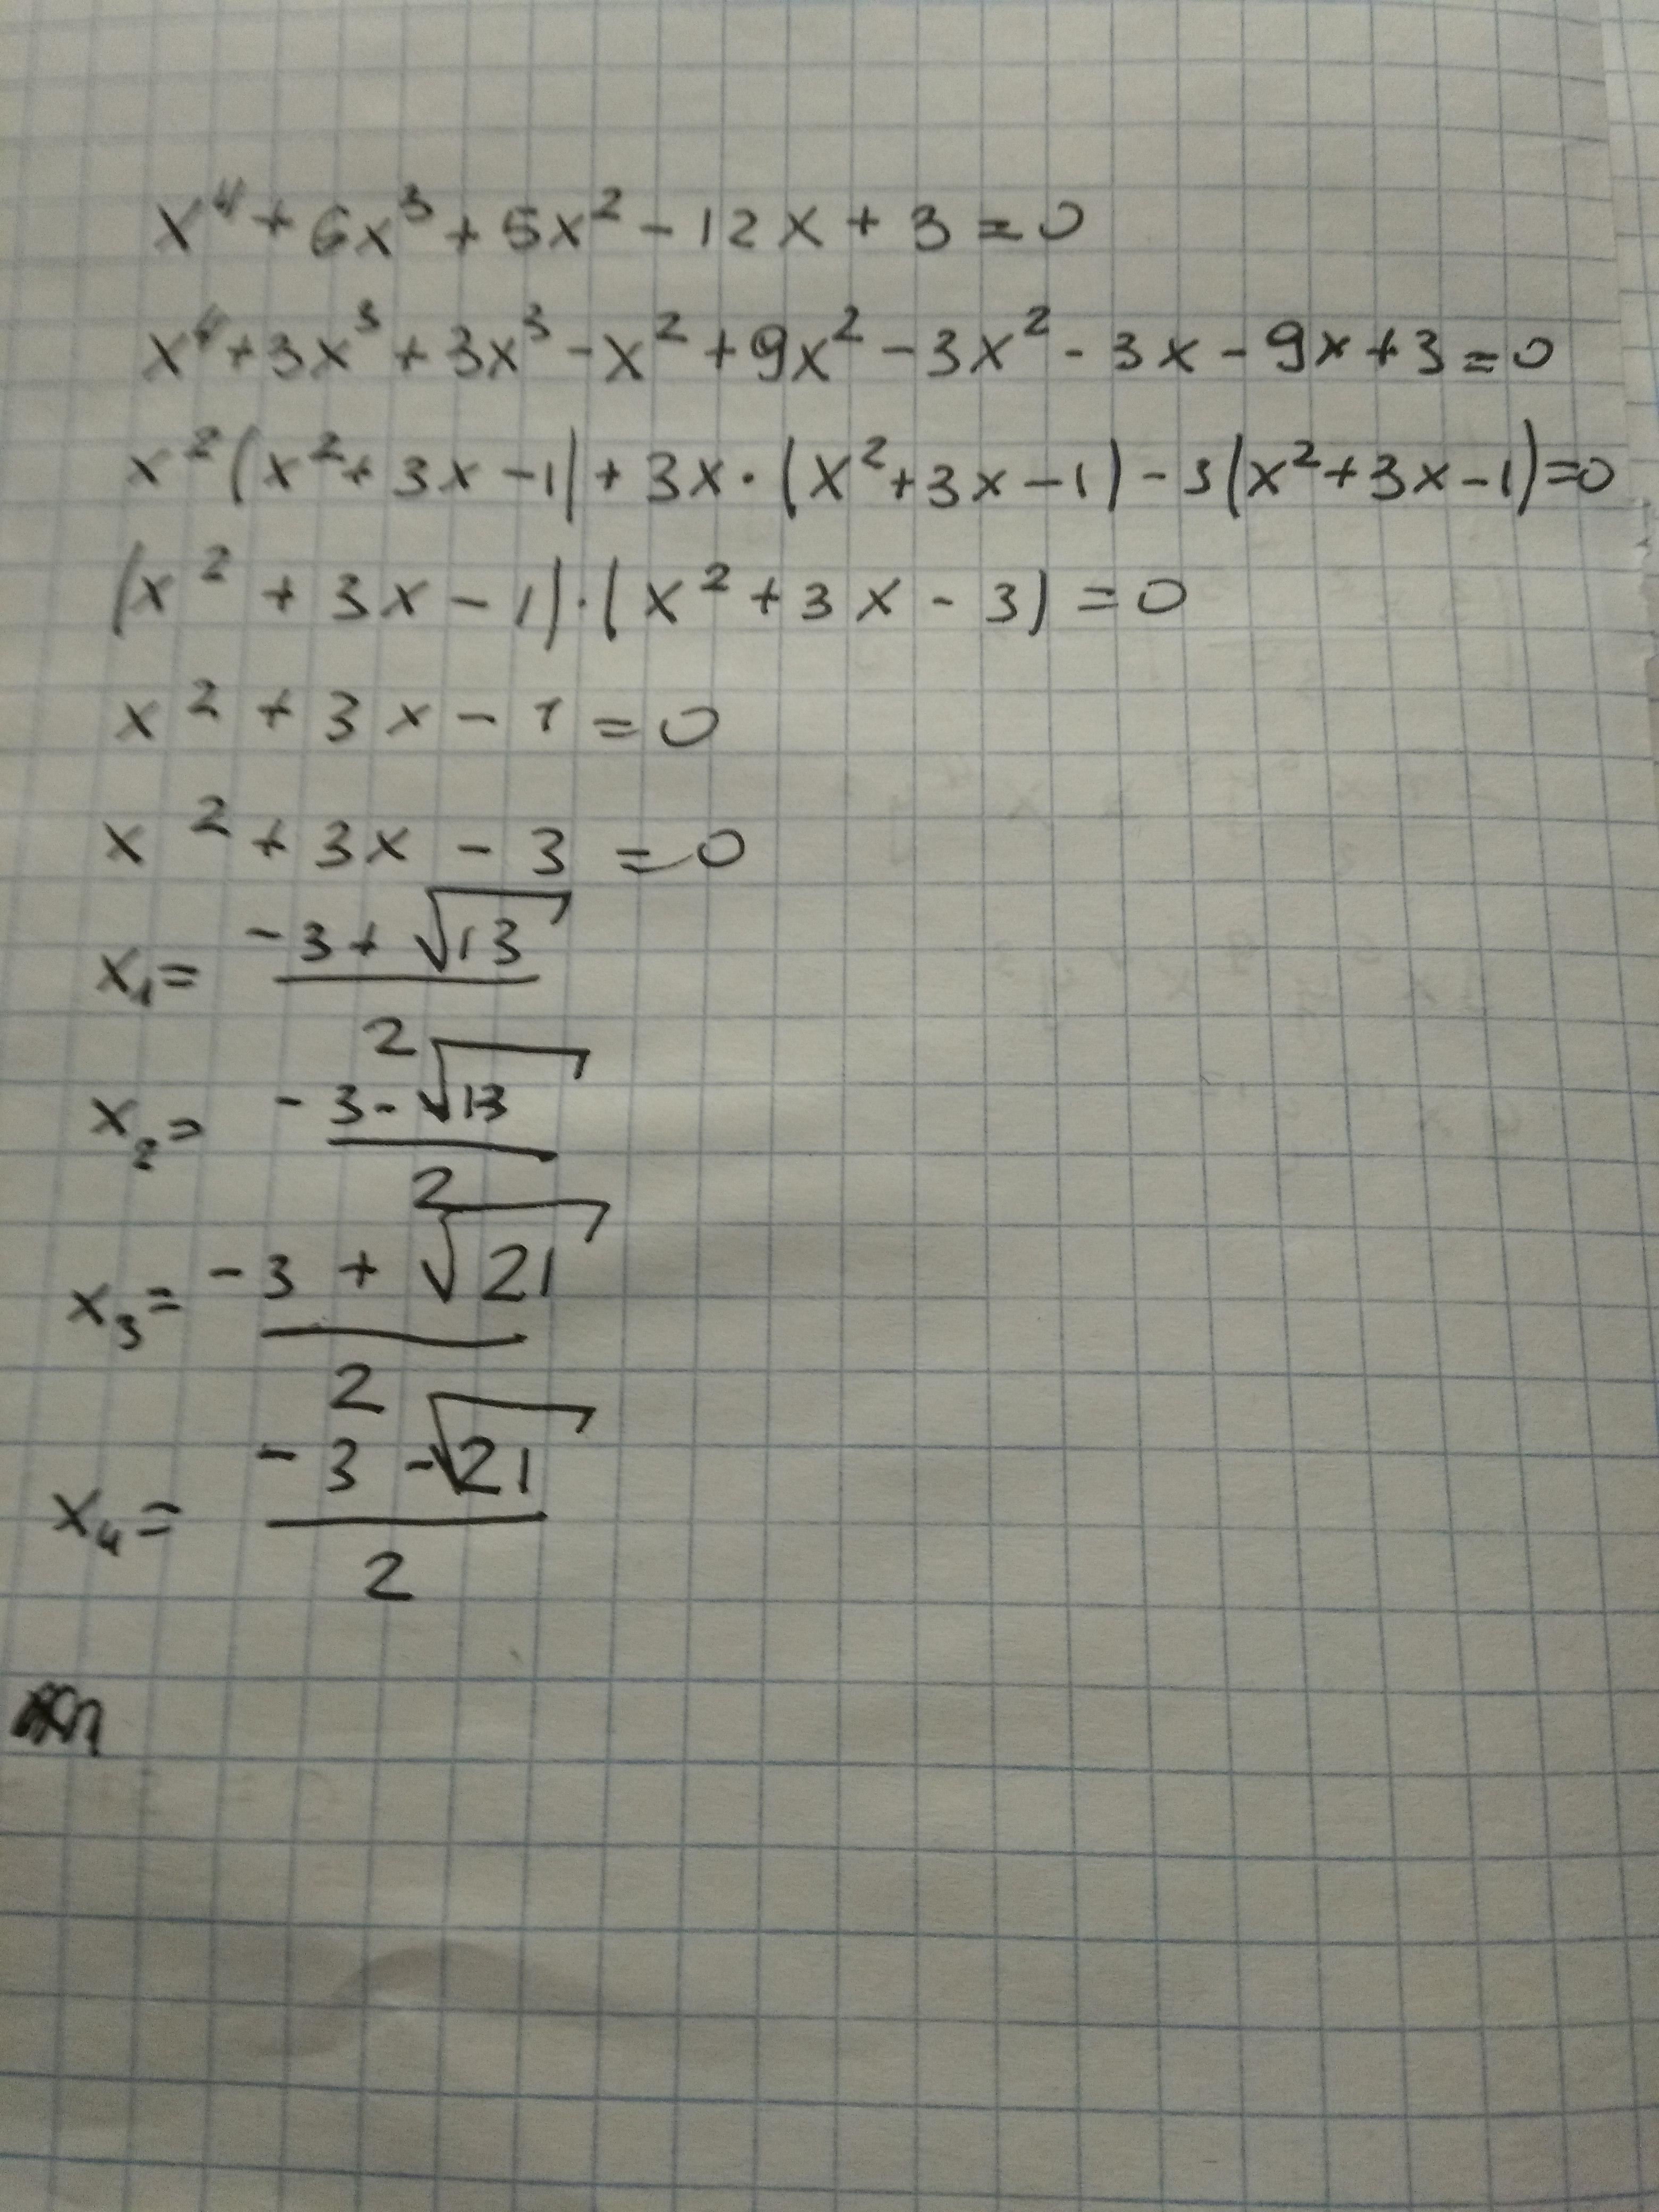 x⁴ + 6x³ + 5x² - 12x + 3 = 0
x⁴ + 3x³ + 3x³ - x² + 9x² - 3x² - 3x - 9x + 3 = 0
x²(x² + 3x - 1) + 3x · (x² + 3x - 1) - 3(x² + 3x - 1) = 0
(x² + 3x - 1) · (x² + 3x - 3) = 0
x² + 3x - 1 = 0
x² + 3x - 3 = 0
x₁ = (-3 + √13)/2
x₂ = (-3 - √13)/2
x₃ = (-3 + √21)/2
x₄ = (-3 - √21)/2